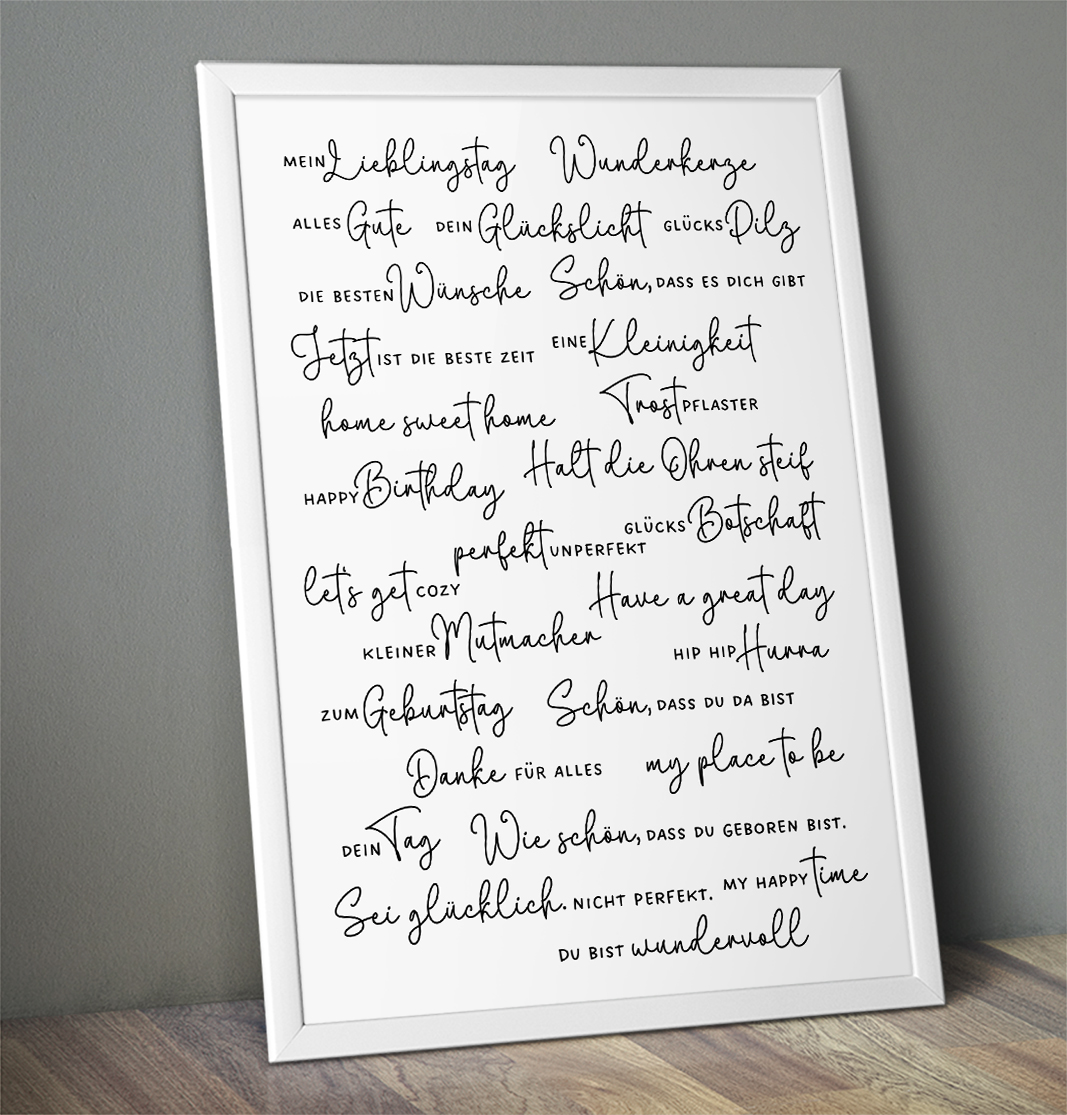 MEIN Lieblingstag Wunderkerze
ALLES Gute DEIN Glückslicht GLÜCKS Pilz
DIE BESTEN Wünsche Schön, DASS ES DICH GIBT
Jetzt IST DIE BESTE ZEIT EINE Kleinigkeit
home sweet home Trost PFLASTER
HAPPY Birthday Halt die Ohren steif
perfekt UNPERFEKT GLÜCKS Botschaft
let's get COZY Have a great day
KLEINER Mutmacher HIP HIP Hurra
ZUM Geburtstag Schön, DASS DU DA BIST
Danke FÜR ALLES my place to be
DEIN Tag Wie schön, DASS DU GEBOREN BIST.
Sei glücklich. NICHT PERFEKT. MY HAPPY time
DU BIST wundervoll